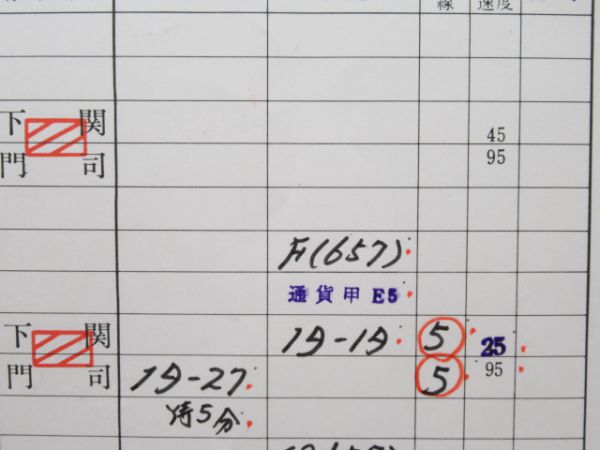 線 速度
下 関 45
門 司 95
F(657)
通貨甲 E5
下 関 19-19 5 25
門 司 19-27 5 95
待5分